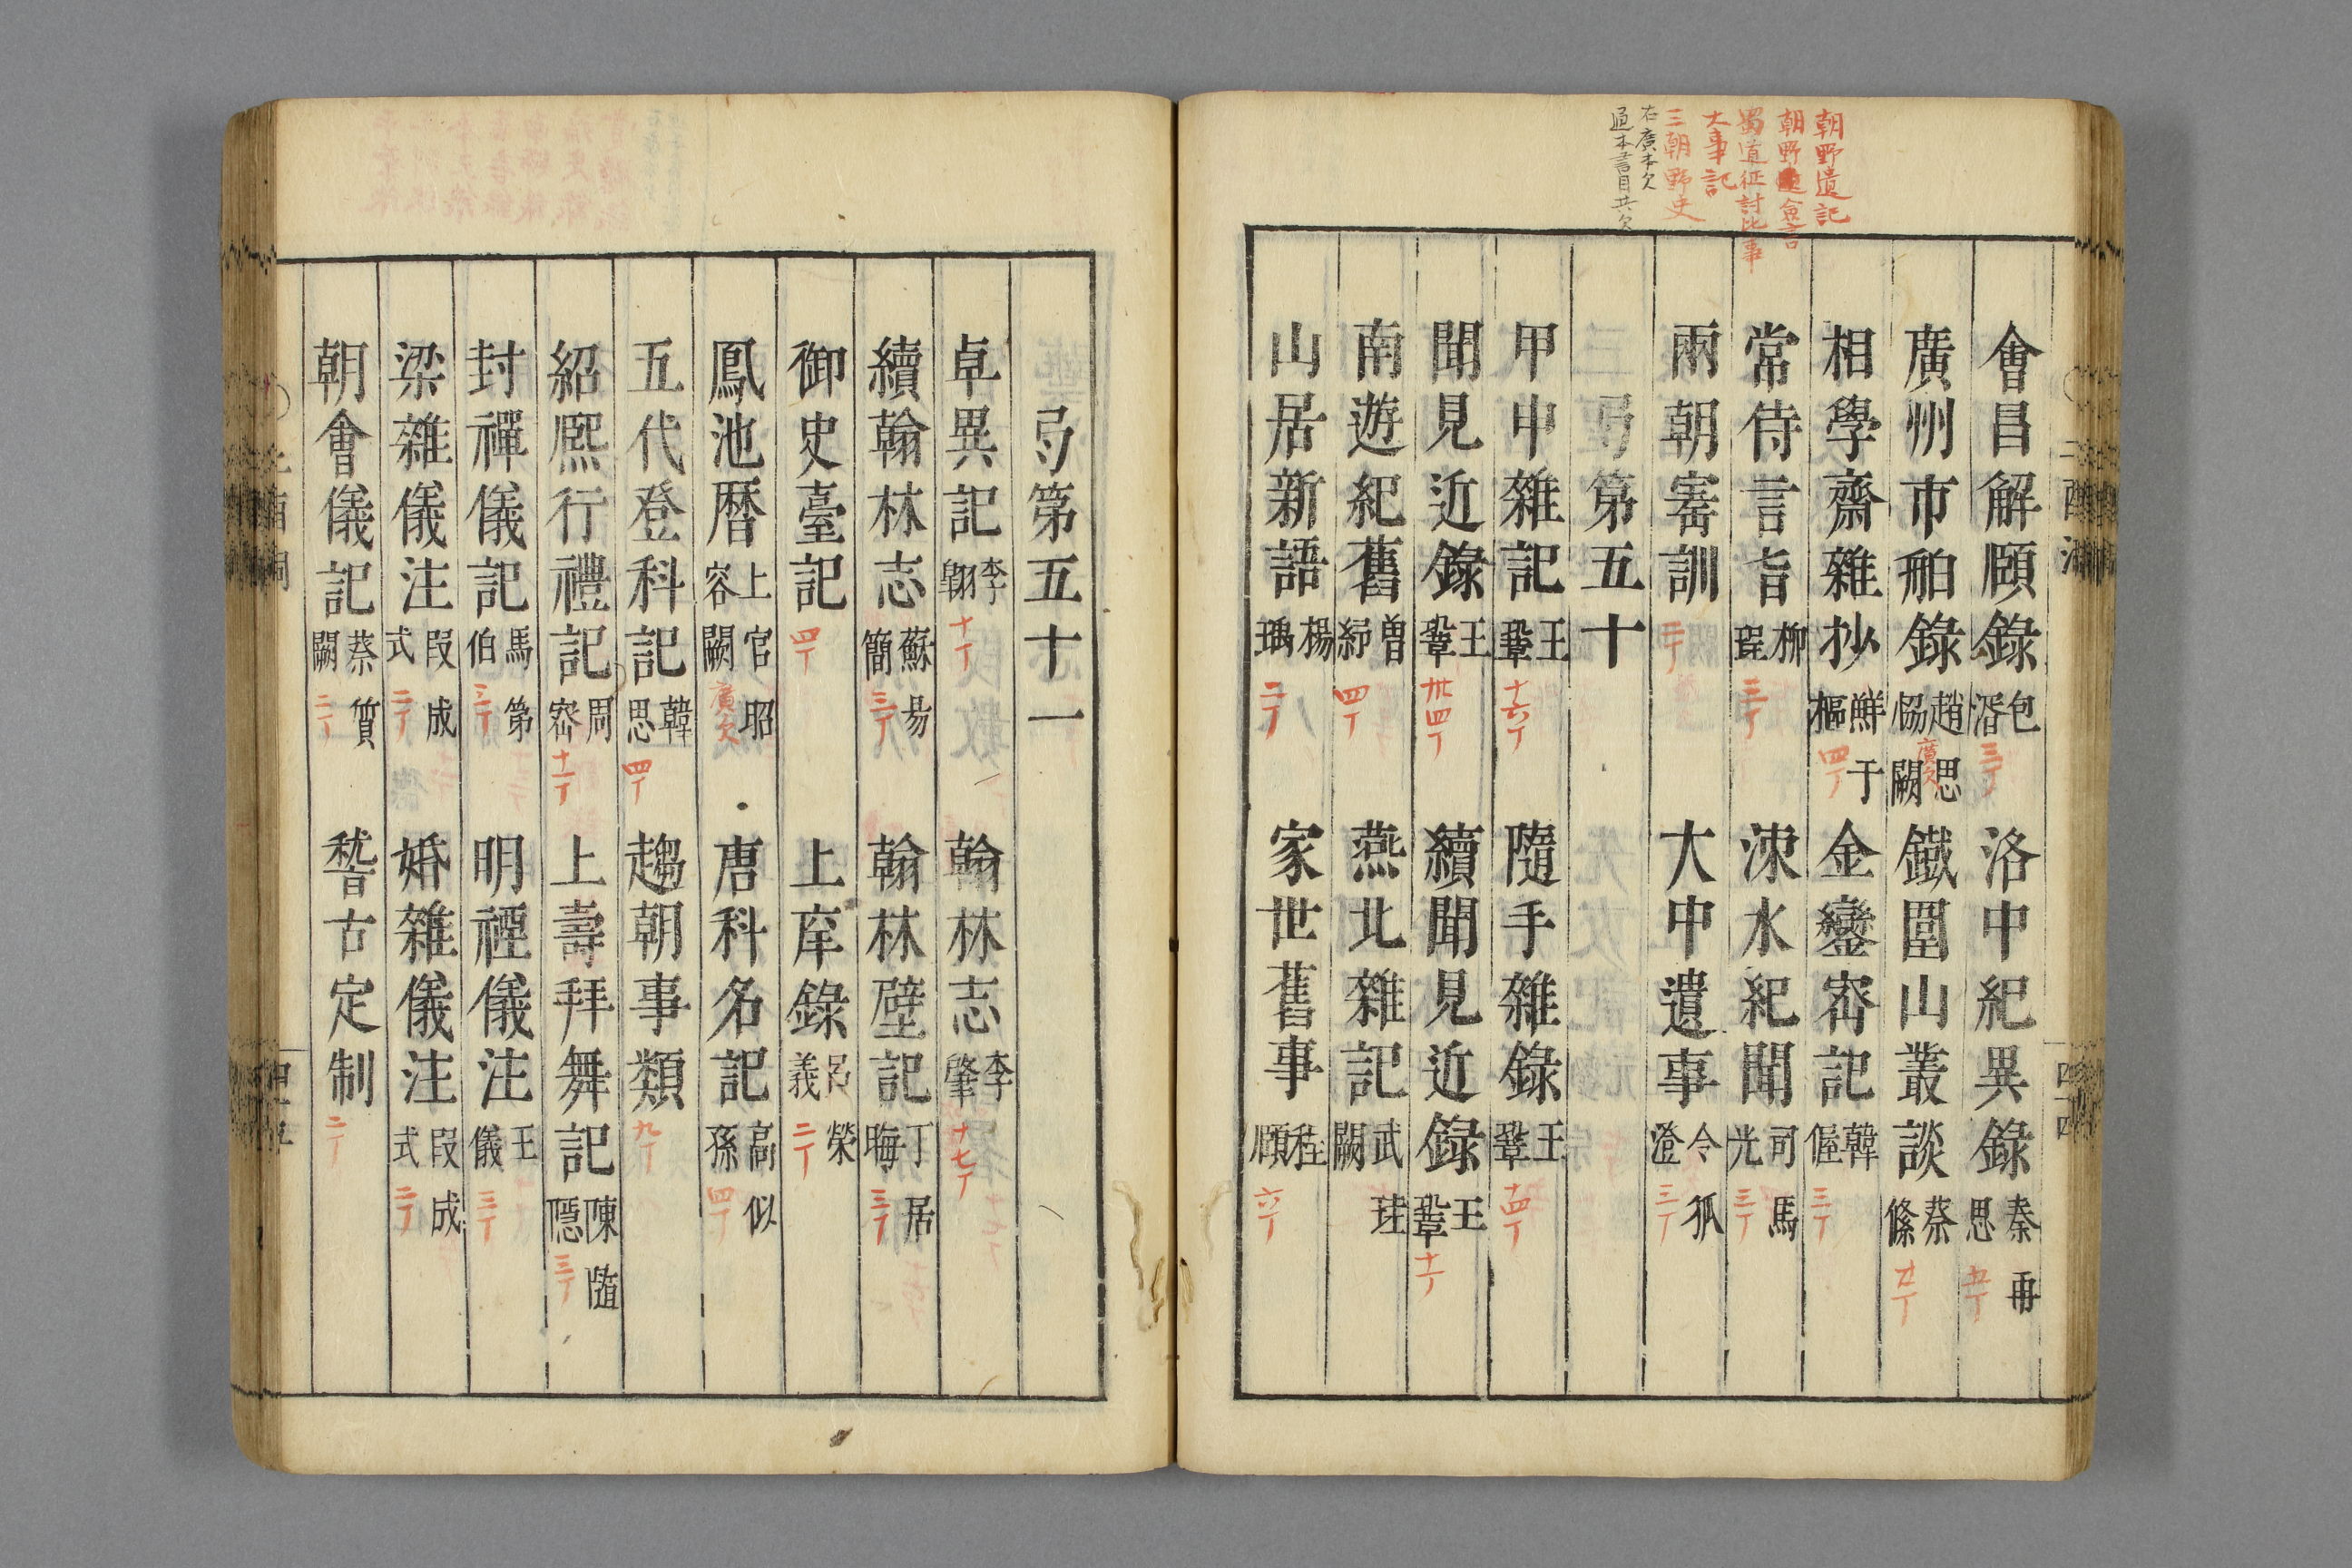 朝野遺記
朝野僉言
蜀道征討比事
大事記
三朝野史
右廣本欠
通本書目共欠
會昌解頤錄 包湑 三丁 洛中紀異錄 秦再思 五丁
廣州市舶錄 趙思恊 闕 廣欠 鐵圍山叢談 蔡絛 廿丁
相學齋雜抄 鮮于樞 四丁 金鑾密記 韓偓 三丁
常侍言旨 柳珵 三丁 涑水紀聞 司馬光 三丁
兩朝寗訓 二丁 大中遺事 令狐澄 三丁
弓第五十
甲申雜記 王鞏 十六丁 隨手雜錄 王鞏 十四丁
聞見近錄 王鞏 卅四丁 續聞見近錄 王鞏 十一丁
南遊紀舊 曽紆 四丁 燕北雜記 武珪 闕
山居新語 楊瑀 二丁 家世舊事 程頤 六丁
弓第五十一
卓異記 李翺 十丁 翰林志 李肇 十七丁
續翰林志 蘇易簡 三丁 翰林壁記 丁居晦 三丁
御史臺記 四丁 上庠錄 呂榮義 二丁
鳳池曆 上官昭容 闕 廣欠 唐科名記 高似孫 四丁
五代登科記 韓思 四丁 趨朝事類 九丁
紹熙行禮記 周密 十一丁 上壽拜舞記 陳隨隱 三丁
封禪儀記 馬第伯 三丁 明禋儀注 王儀 三丁
梁雜儀注 段成式 二丁 婚雜儀注 段成式 二丁
朝會儀記 蔡質 闕 二丁 稽古定制 二丁